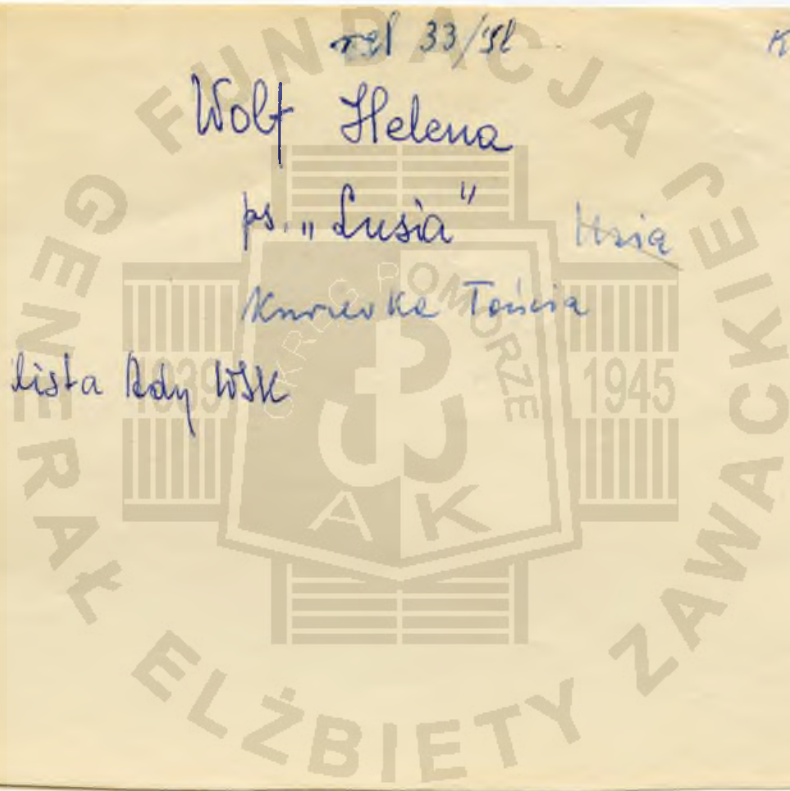 33/
K
Wolf Helena
ps. „Lusia"
Kurierka Tońcia
lista Ady WSK
FUNDACJA GENERAŁ ELŻBIETY ZAWACKIEJ
OKRĘG POMORZE
1939 1945
AK